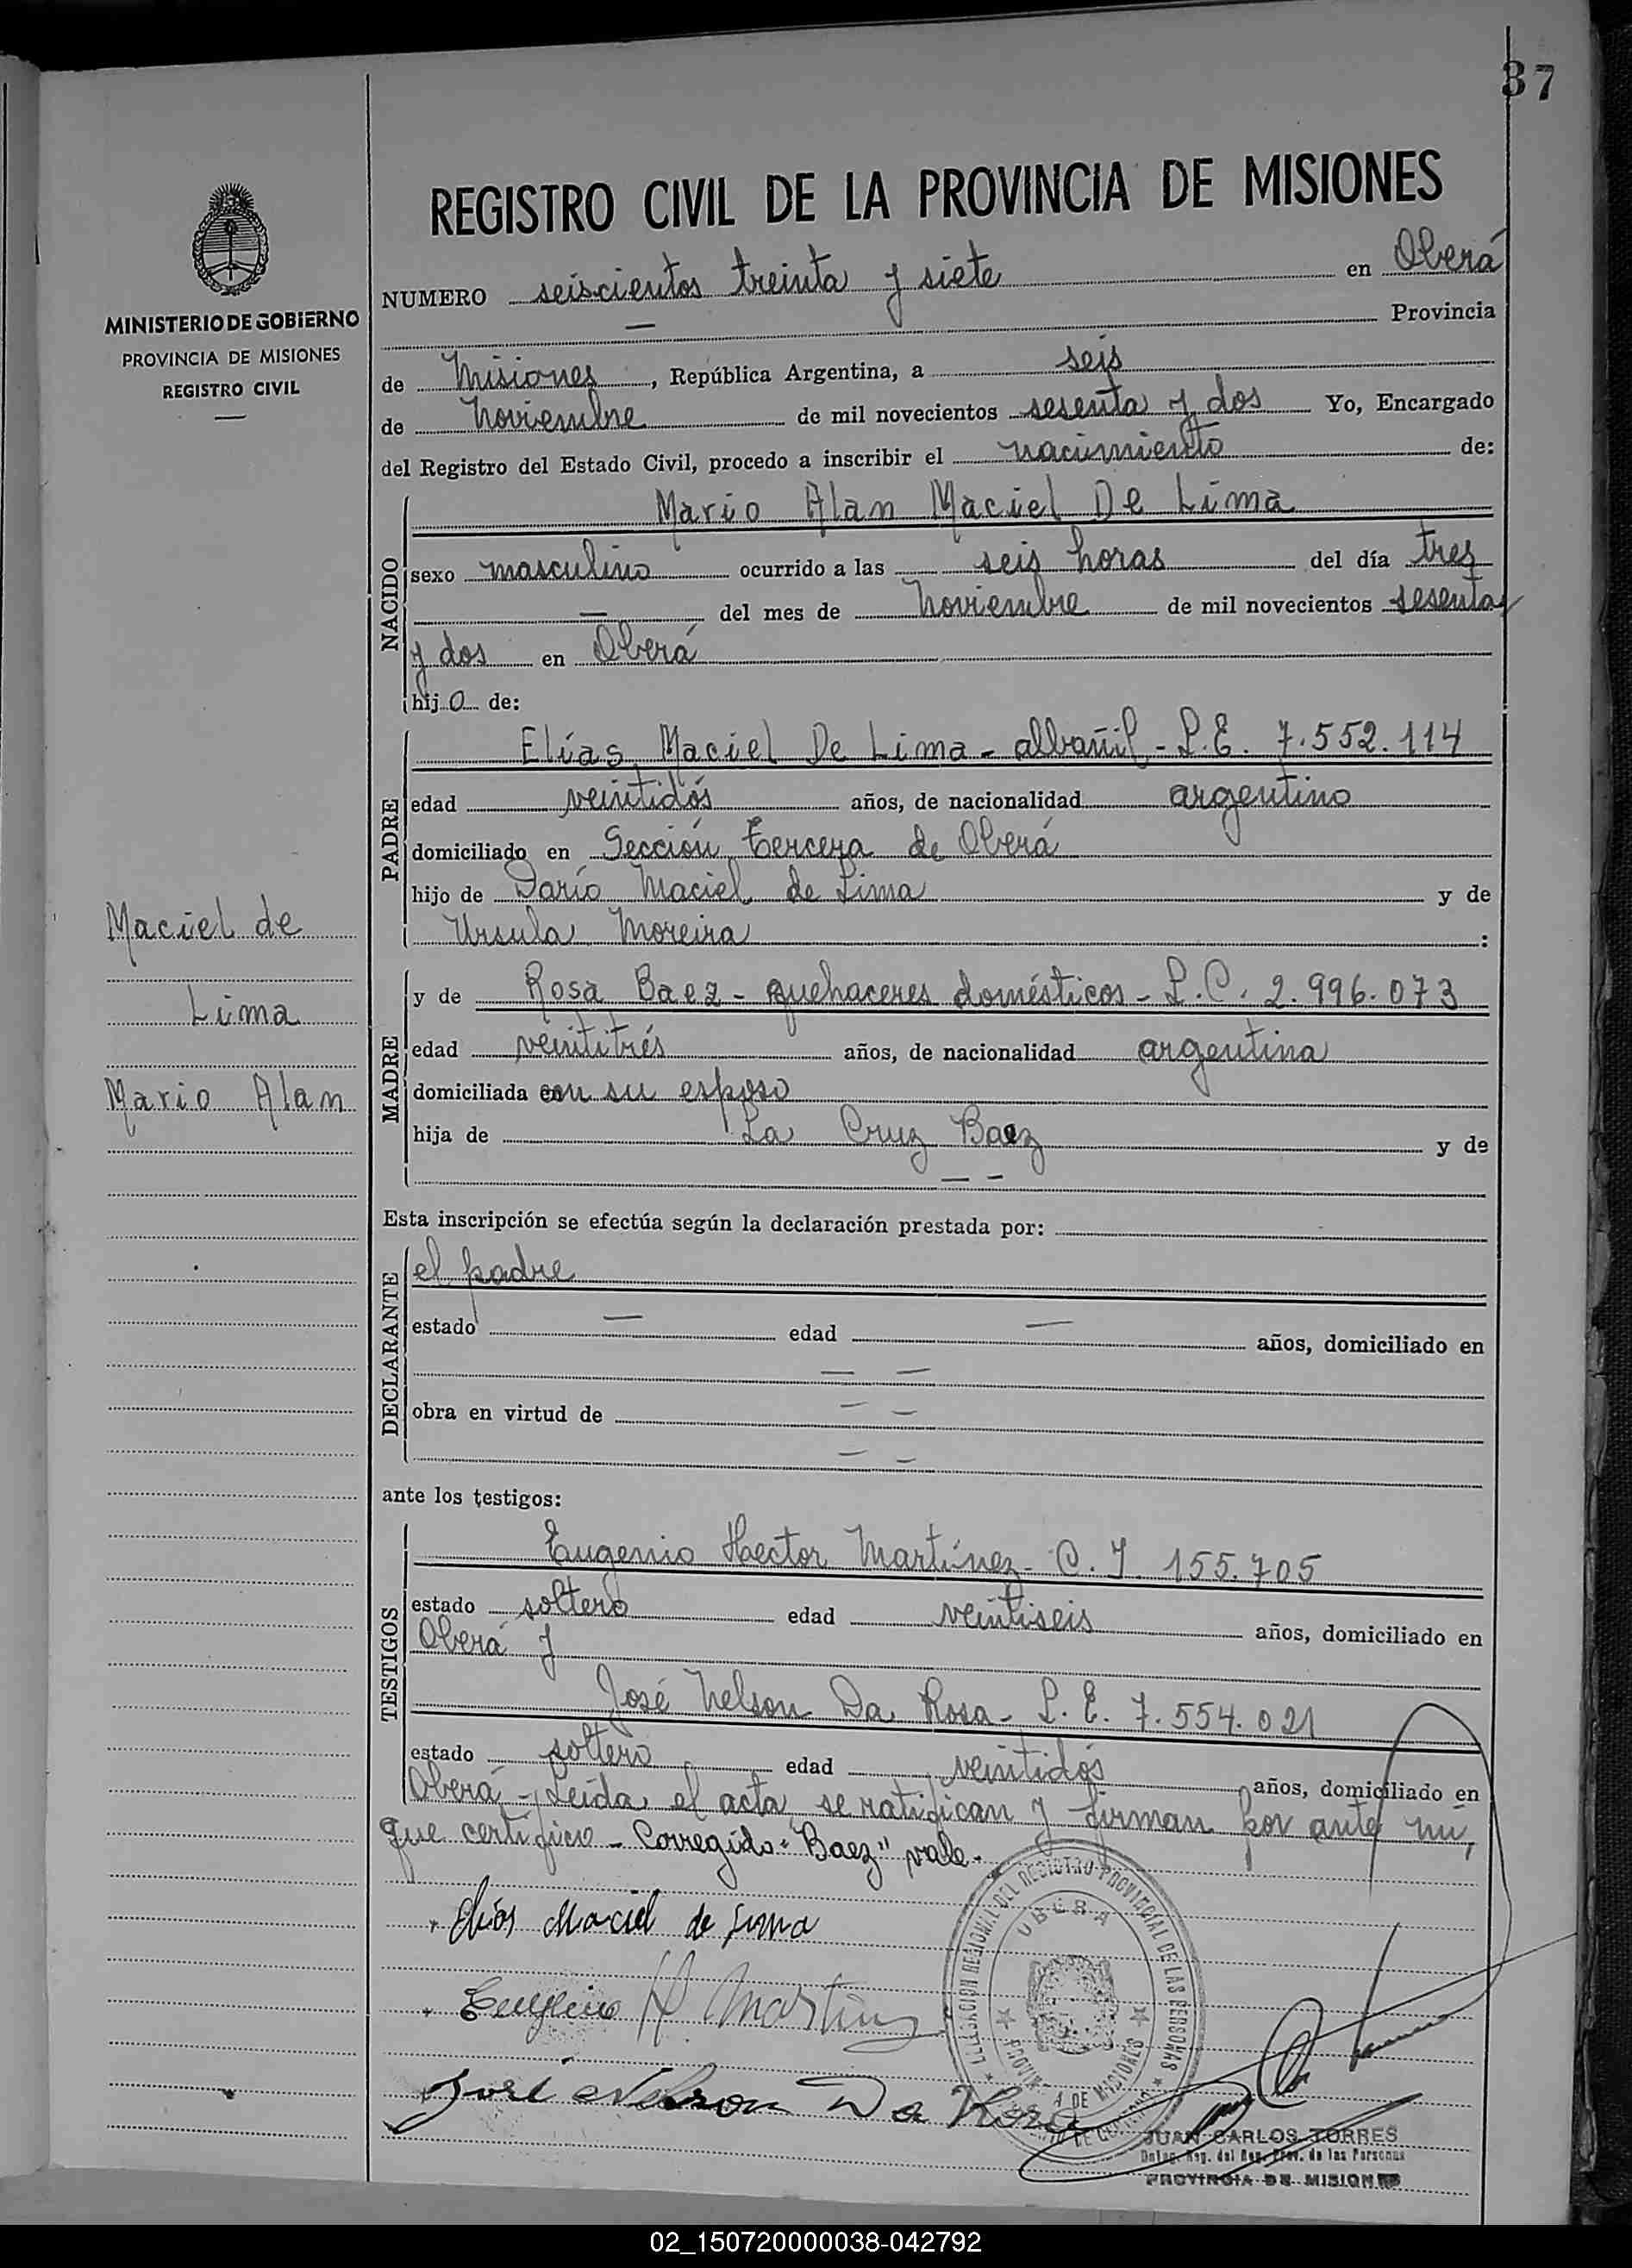 37
REGISTRO CIVIL DE LA PROVINCIA DE MISIONES
MINISTERIO DE GOBIERNO
PROVINCIA DE MISIONES
REGISTRO CIVIL
NUMERO seiscientos treinta y siete en Oberá
— Provincia
de Misiones, República Argentina, a seis
de Noviembre de mil novecientos sesenta y dos Yo, Encargado
del Registro del Estado Civil, procedo a inscribir el nacimiento de:
NACIDO
Mario Alan Maciel De Lima
sexo masculino ocurrido a las seis horas del día tres
— del mes de Noviembre de mil novecientos sesenta
y dos en Oberá
hijo de:
PADRE
Elías Maciel De Lima - albañil - L.E. 7.552.114
edad veintidós años, de nacionalidad argentino
domiciliado en Sección tercera de Oberá
hijo de Darío Maciel de Lima y de
Ursula Moreira :
Maciel de
Lima
Mario Alan
MADRE
y de Rosa Baez - quehaceres domésticos - L.C. 2.996.073
edad veintitrés años, de nacionalidad argentina
domiciliada con su esposo
hija de La Cruz Baez y de
— —
Esta inscripción se efectúa según la declaración prestada por:
DECLARANTE
el padre
estado — edad — años, domiciliado en
— —
obra en virtud de — —
— —
ante los testigos:
TESTIGOS
Eugenio Hector Martínez - C.I. 155.705
estado soltero edad veintiseis años, domiciliado en
Oberá y
José Nelson Da Rosa - L.E. 7.554.021
estado soltero edad veintidós años, domiciliado en
Oberá - Leída el acta, se ratifican y firman por ante mi,
que certifico - Corregido "Baez" vale.
Elías Maciel de Lima
Eugenio H Martinez
José Nelson Da Rosa
DELEGACION REGIONAL DEL REGISTRO PROVINCIAL DE LAS PERSONAS
OBERA
PROVINCIA DE MISIONES
JUAN CARLOS TORRES
Deleg. Reg. del Reg. Prov. de las Personas
PROVINCIA DE MISIONES
02_150720000038-042792